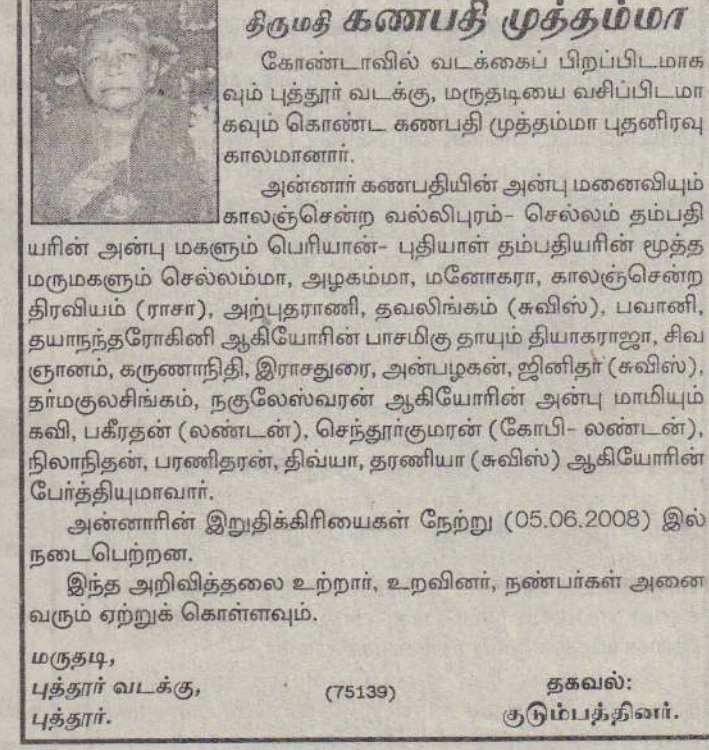 திருமதி கணபதி முத்தம்மா
கோண்டாவில் வடக்கைப் பிறப்பிடமாக
வும் புத்தூர் வடக்கு, மருதடியை வசிப்பிடமா
கவும் கொண்ட கணபதி முத்தம்மா புதனிரவு
காலமானார்.
அன்னார் கணபதியின் அன்பு மனைவியும்
காலஞ்சென்ற வல்லிபுரம்- செல்லம் தம்பதி
யரின் அன்பு மகளும் பெரியான்- புதியாள் தம்பதியரின் மூத்த
மருமகளும் செல்லம்மா, அழகம்மா, மனோகரா, காலஞ்சென்ற
திரவியம் (ராசா), அற்புதராணி, தவலிங்கம் (சுவிஸ்), பவானி,
தயாநந்தரோகினி ஆகியோரின் பாசமிகு தாயும் தியாகராஜா, சிவ
ஞானம், கருணாநிதி, இராசதுரை, அன்பழகன், ஜினிதா் (சுவிஸ்),
தர்மகுலசிங்கம், நகுலேஸ்வரன் ஆகியோரின் அன்பு மாமியும்
கவி, பகீரதன் (லண்டன்), செந்தூர்குமரன் (கோபி- லண்டன்),
நிலாநிதன், பரணிதரன், திவ்யா, தரணியா (சுவிஸ்) ஆகியோரின்
பேர்த்தியுமாவார்.
அன்னாரின் இறுதிக்கிரியைகள் நேற்று (05.06.2008) இல்
நடைபெற்றன.
இந்த அறிவித்தலை உற்றார், உறவினர், நண்பர்கள் அனை
வரும் ஏற்றுக் கொள்ளவும்.
மருதடி,
புத்தூர் வடக்கு,
புத்தூர்.
(75139)
தகவல்:
குடும்பத்தினர்.